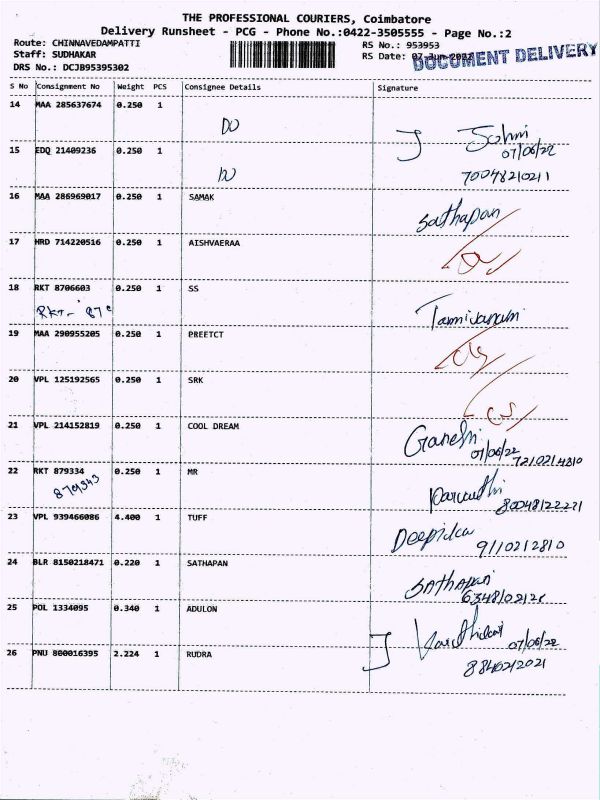 THE PROFESSIONAL COURIERS, Coimbatore
Delivery Runsheet - PCG - Phone No.:0422-3505555 - Page No.:2
Route: CHINNAVEDAMPATTI RS No.: 953953
Staff: SUDHAKAR RS Date: 07-Jun-2022 DOCUMENT DELIVERY
DRS No.: DCJB95395302
S No Consignment No Weight PCS Consignee Details Signature
14 MAA 285637674 0.250 1
DO
J Johni
07/06/22
15 EDQ 21409236 0.250 1
DO 7004821021 1
16 MAA 286969017 0.250 1 SAMAK
Sathapan
17 HRD 714220516 0.250 1 AISHVAERAA
18 RKT 8706603 0.250 1 SS
RKT- 87
19 MAA 290955205 0.250 1 PREETCT
20 VPL 125192565 0.250 1 SRK
21 VPL 214152819 0.250 1 COOL DREAM
Ganesh
07/06/22
7210214810
22 RKT 879334 0.250 1 MR
8 80048122221
23 VPL 939466086 4.400 1 TUFF
Deepika
9110212810
24 BLR 8150218471 0.220 1 SATHAPAN
Sathapan
25 POL 1334095 0.340 1 ADULON
07/06/22
26 PNU 800016395 2.224 1 RUDRA
J 8840212021